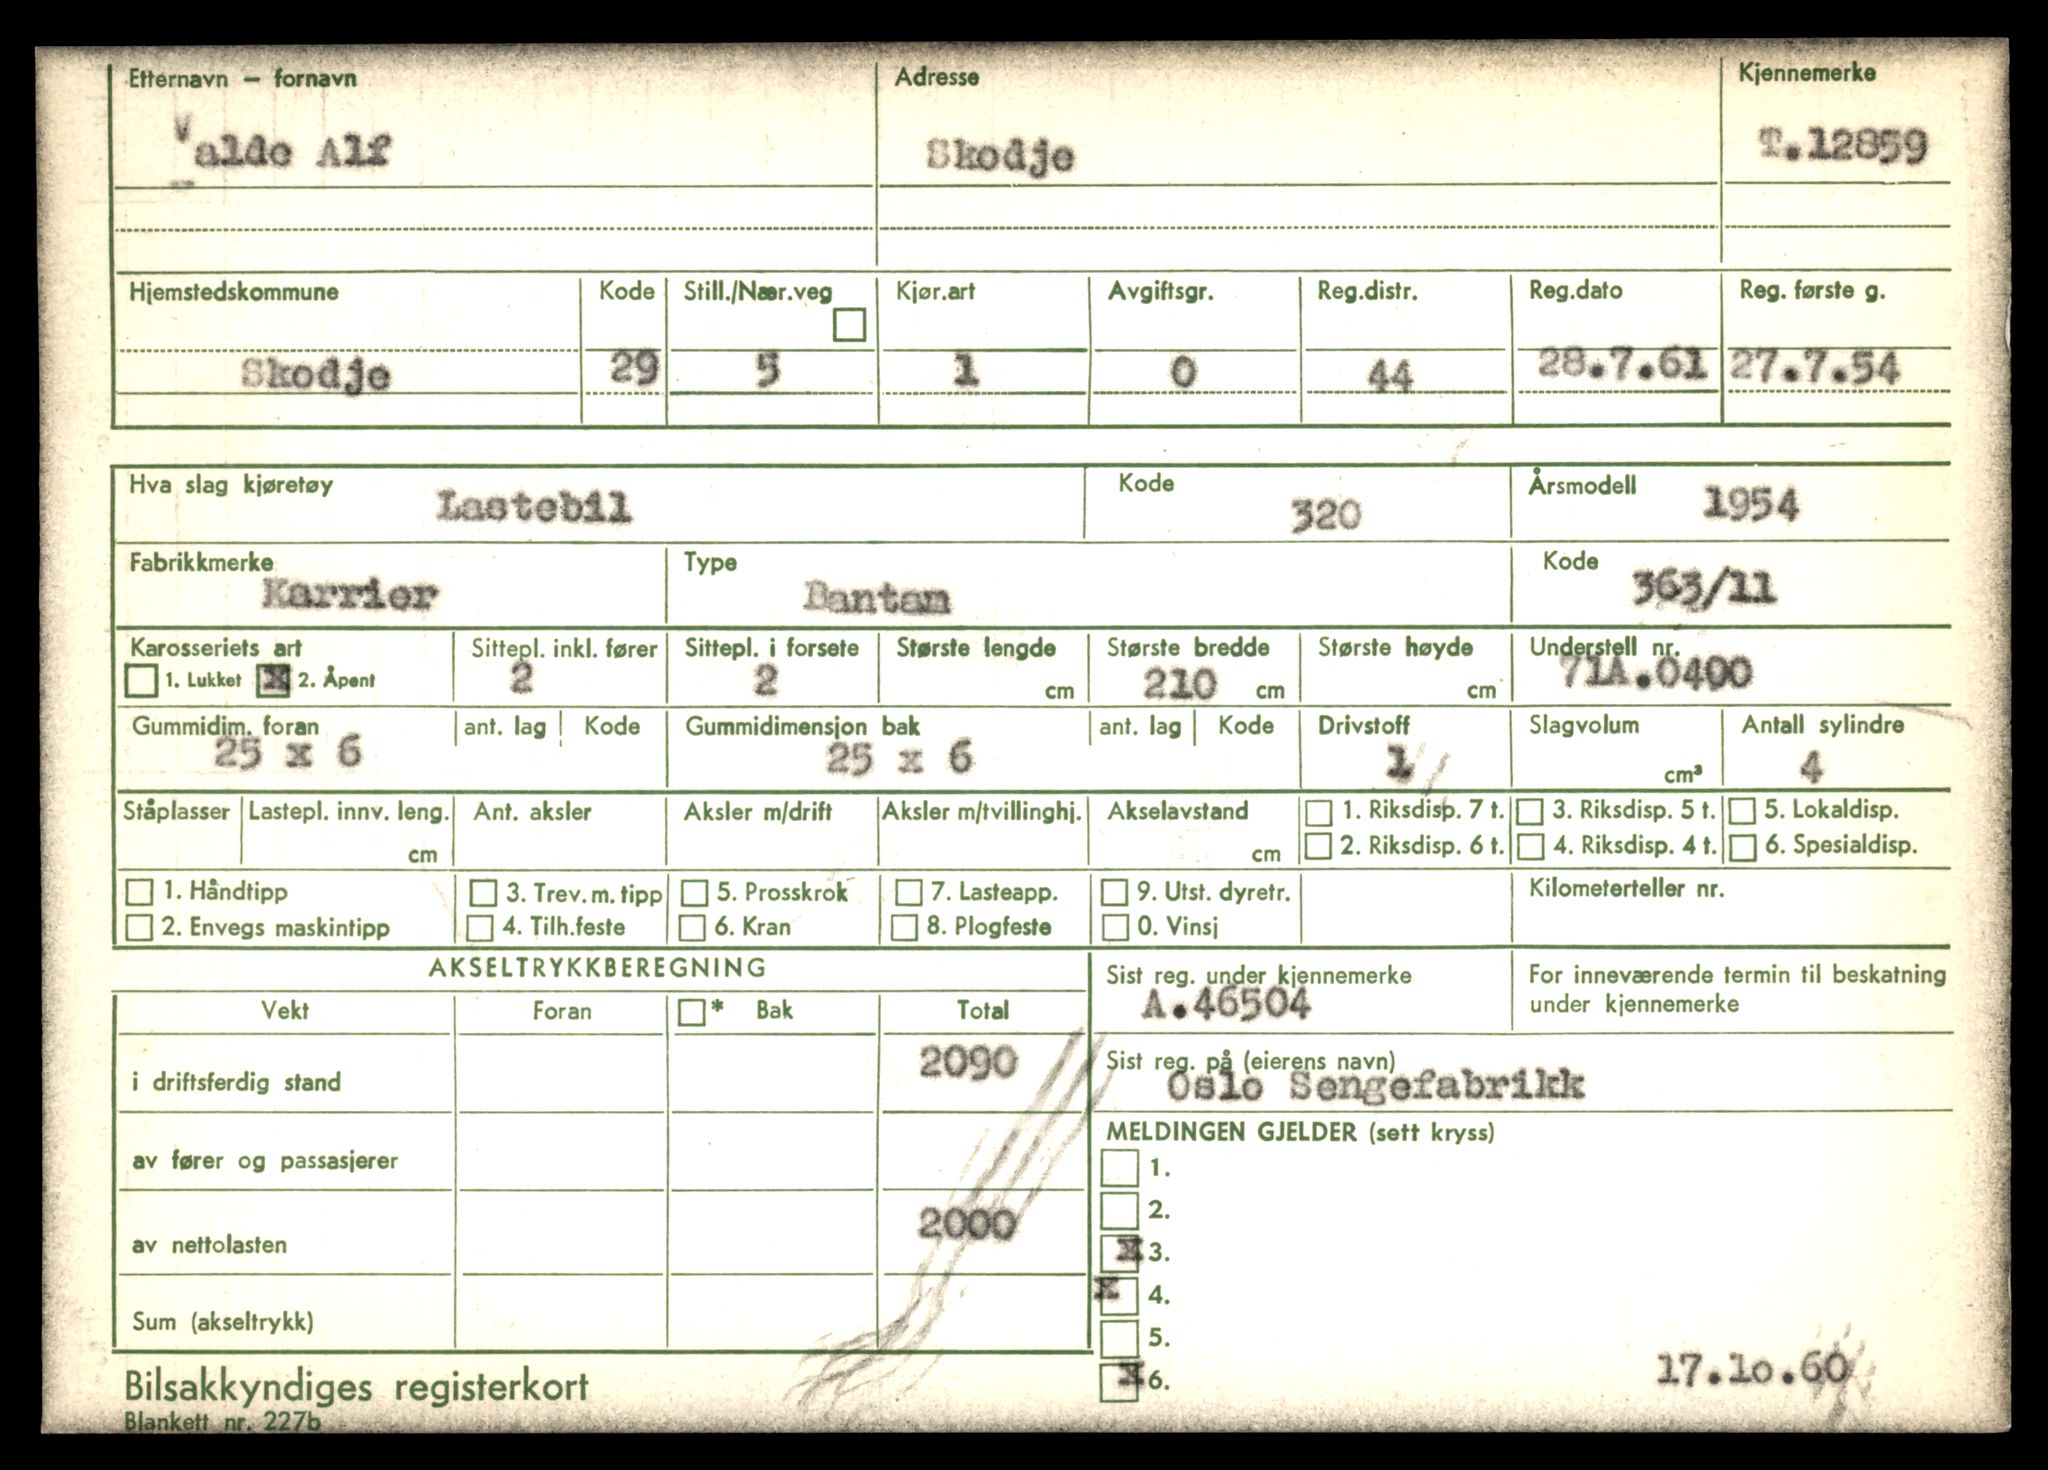 Etternavn – fornavn Adresse Kjennemerke
Valde Alf Skodje T.12859
Hjemstedskommune Kode Still./Nær.veg Kjør.art Avgiftsgr. Reg.distr. Reg.dato Reg. første g.
Skodje 29 5 1 0 44 28.7.61 27.7.54
Hva slag kjøretøy Lastebil Kode 320 Årsmodell 1954
Fabrikkmerke Type Kode
Karrier Bantam 363/11
Karosseriets art Sittepl. inkl. fører Sittepl. i forsete Største lengde Største bredde Største høyde Understell nr.
1. Lukket x 2. Åpent 2 2 cm 210 cm cm 71A.0400
Gummidim. foran ant. lag Kode Gummidimensjon bak ant. lag Kode Drivstoff Slagvolum Antall sylindre
25 x 6 25 x 6 1 cm³ 4
Ståplasser Lastepl. innv. leng. Ant. aksler Aksler m/drift Aksler m/tvillinghj. Akselavstand 1. Riksdisp. 7 t. 3. Riksdisp. 5 t. 5. Lokaldisp.
cm cm 2. Riksdisp. 6 t. 4. Riksdisp. 4 t. 6. Spesialdisp.
1. Håndtipp 3. Trev. m. tipp 5. Prosskrok 7. Lasteapp. 9. Utst. dyretr. Kilometerteller nr.
2. Envegs maskintipp 4. Tilh.feste 6. Kran 8. Plogfeste 0. Vinsj
AKSELTRYKKBEREGNING
Vekt Foran * Bak Total
i driftsferdig stand 2090
av fører og passasjerer
av nettolasten 2000
Sum (akseltrykk)
Sist reg. under kjennemerke For inneværende termin til beskatning
A.46504 under kjennemerke
Sist reg. på (eierens navn)
Oslo Sengefabrikk
MELDINGEN GJELDER (sett kryss)
1.
2.
x 3.
x 4.
5.
x 6.
17.10.60
Bilsakkyndiges registerkort
Blankett nr. 227b